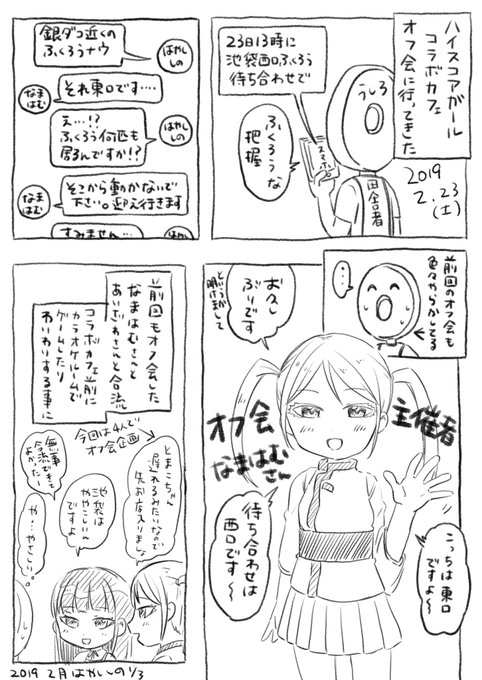 ハイスコアガール
コラボカフェ
オフ会に行ってきた
2019
2.23
(土)
23日13時に
池袋西口ふくろう
待ち合わせで
うしろ
スマホ
ふくろうな
把握
田舎者
銀ダコ近くの
ふくろうナウ
はやし
しの
なま
はむ
それ東口です‥‥
え…!?
ふくろう何匹も
居るんですか!?
はやし
しの
なま
はむ
そこから動かないで
下さい。迎え行きます
すみません…
はやし
前回のオフ会も
色々やらかしてる
…
お久し
ぶりです
という訳で
主催者
オフ会
なまはむ
さん
こっちは東口
ですよ〜
待ち合わせは
西口です〜
前回もオフ会した
なまはむさんと
あいざわさんと合流
コラボカフェ前に
カラオケルームで
ゲームしたり
わいわいする事に
今回は4人で
オフ会企画
とまこちゃん
遅れるみたいなので
先お店入りましょ
池袋は
ややこしいん
ですよ
無事
合流できて
よかったー
や…やさしい。
2019 2月 はやしのり 1/3